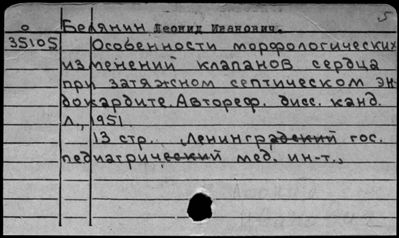 5
о Белянин Леонид Иванович.
35105 Особенности морфологических
изменений клапанов сердца
при затяжном септическом эн-
докардите. Автореф. дисс. канд.
Л., 1951.
13 стр. Ленинградский гос.
педиатрический мед. ин-т.,